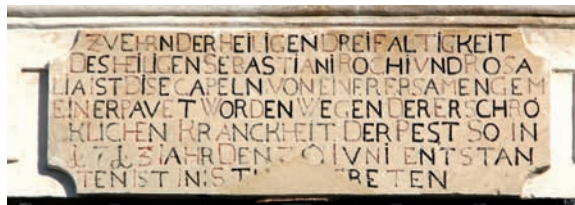 ZVEHRN DER HEILIGEN DREIFALTIGKEIT
DES HEILIGEN SEBASTIANI ROCHI VND ROSA
LIA IST DISE CAPELN VON EINER ERSAMEN GEM
EIN ERPAVET WORDEN WEGEN DER ERSCHRÖ
KLICHEN KRANCKHEIT DER PEST SO IN
1713 IAHR DEN 30 IVNI ENTSTAN
TEN IST IN: